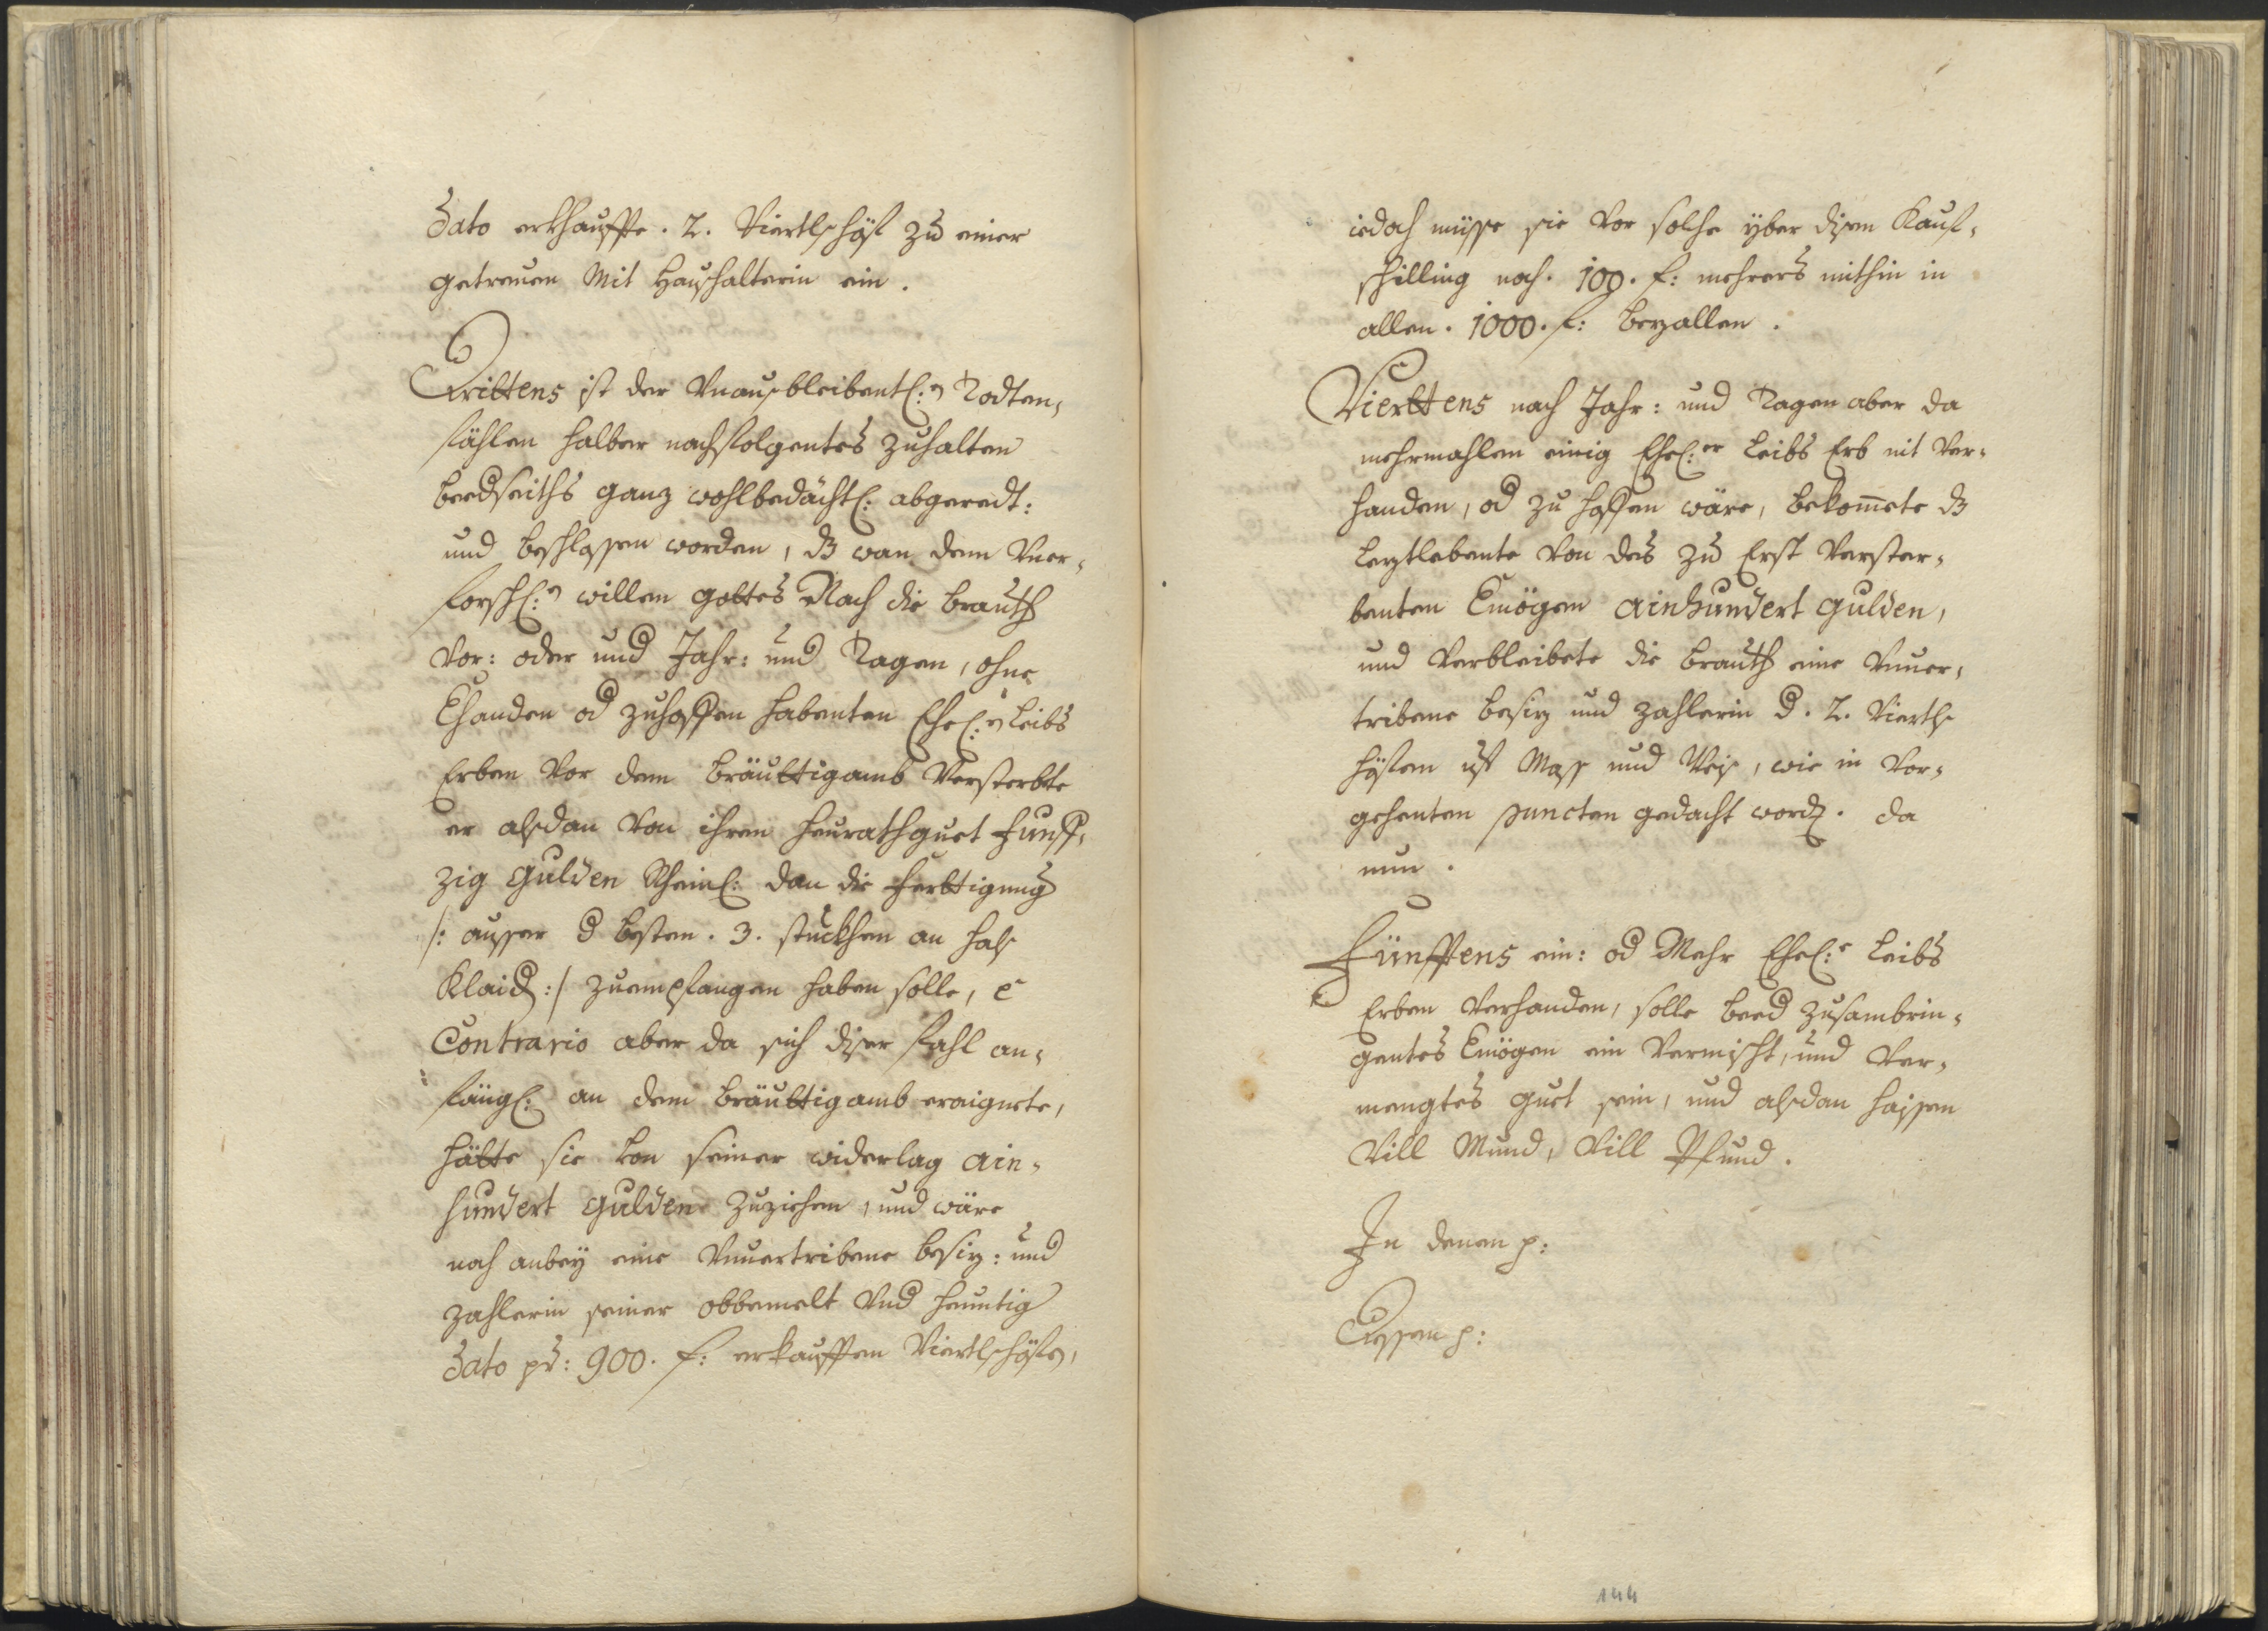 Dato erkhauffte . 2 . Viertlhöff zu einer
getreuen Mit Haushalterin ein .
Drittens ist der Vnausbleibentl: Todten,
fählen halber nachfolgentes zuhalten
beedseiths ganz wohlbedächtl: abgeredt:
und beschlossen worden, dz wan dem Vner,
forschl: willen gottes Nach die brauth
Vor: oder und Jahr: und Tagen, ohne
Vhanden od zuhoffen habenten Ehel: Leibs
Erben Vor dem bräuttigamb Versterbte
er alsdan Von ihrem heurathguet Funff,
zig Gulden Rheinl: dan die ferttigung
/: ausser d besten . 3 . stuckhen an hals
Klaid :/ zuempfangen haben solle, e
Contrario aber da sich diser fahl an,
fängl: an dem bräuttigamb eraignete,
hätte sie von seiner widerlag ain,
hundert Gulden zuziehen, und wäre
noch anbey eine Vnuertribene besiz: und
zahlerin seiner obbemelt Vnd heuntig
Dato pr: 900 . f: erkaufften Viertlhöfen,
iedoch müsse sie Vor solche yber disen Kauf,
schilling noch . 100 . f: mehrers mithin in
allen . 1000 . f: bezallen .
Vierttens nach Jahr: und Tagen aber da
mehrmahlen einig Ehel:er Leibs Erb nit Ver,
handen, od zu hoffen wäre, bekom̄ete dz
Leztlebente Von des zu Erst Verster,
benten Vmögen ainhundert Gulden,
und Verbleibete die brauth eine Vnuer,
tribene besiz und zahlerin d . 2 . Viertl
höfen uf Mass und Weis, wie in Vor,
gehenten puncten gedacht word . da
nun .
Fünfftens ein: od Mehr Ehel:e Leibs
Erben Verhanden, solle beed zusambrin,
gentes Vmögen ein Vermischt, und Ver,
mengtes guet sein, und alsdan haissen
Vill Mund, Vill Pfund .
In denen p:
Dessen p:
144